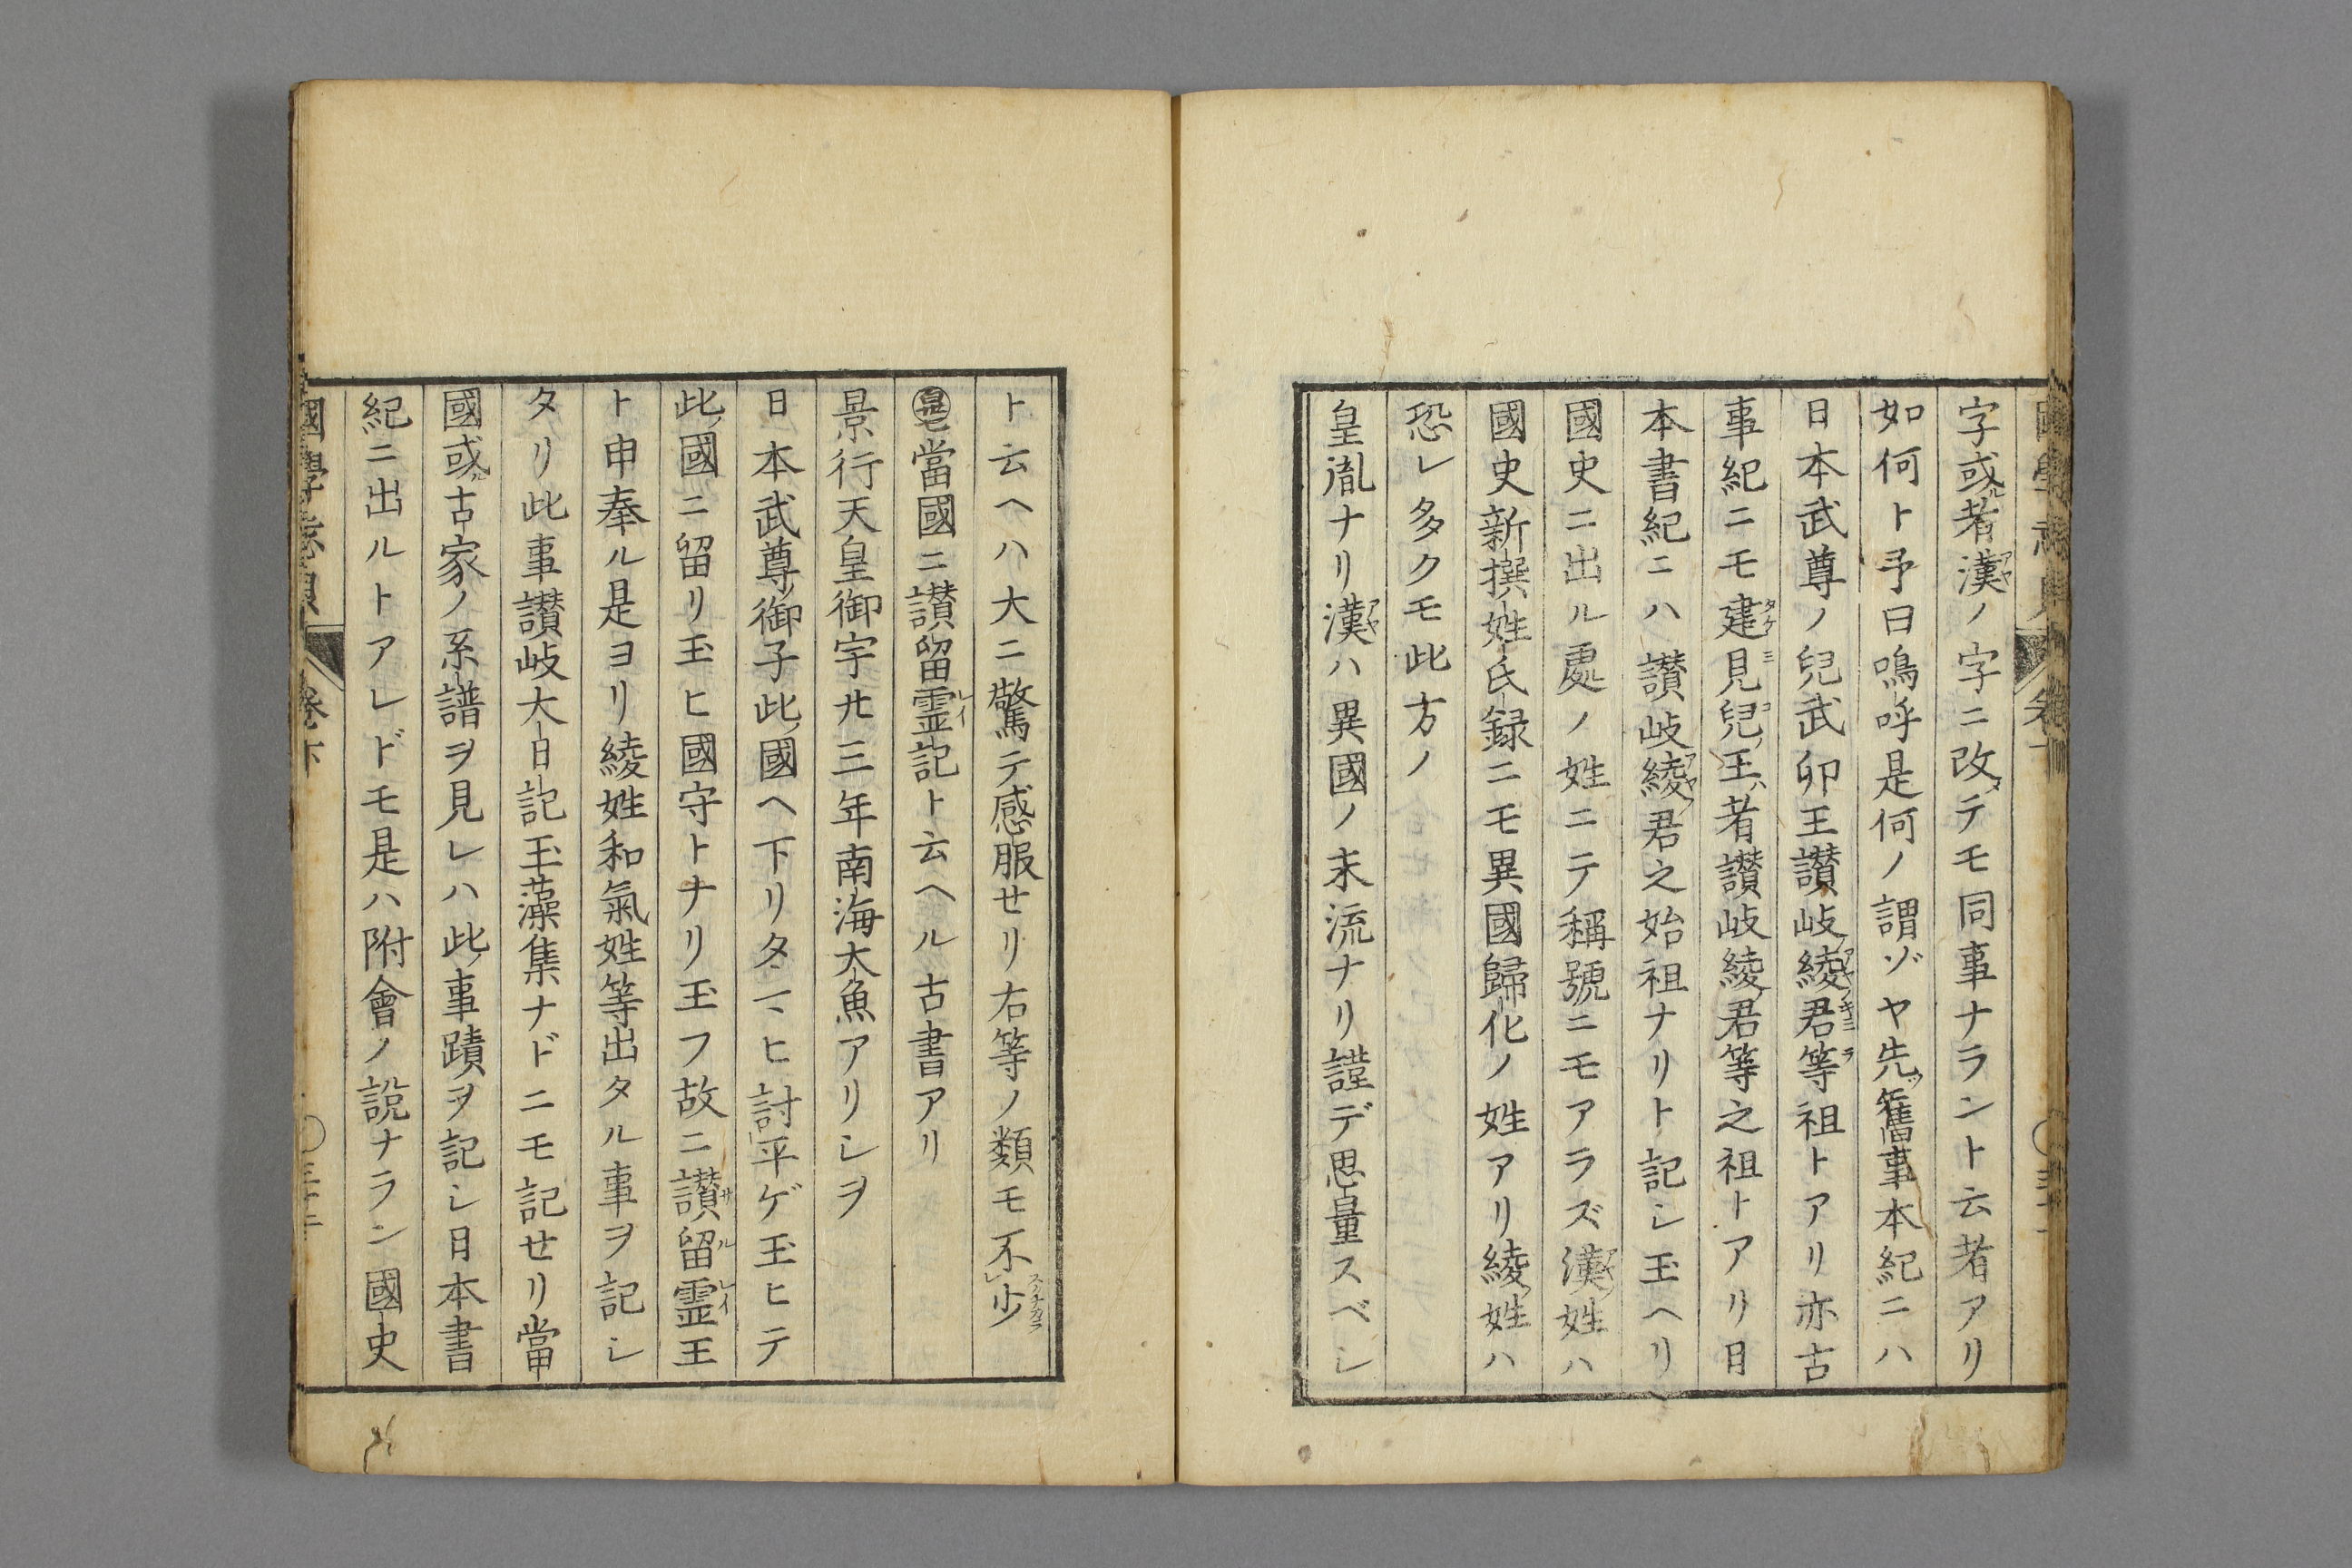 字或者漢ノ字ニ改テモ同事ナラント云者アリ
如何ト予曰嗚呼是何ノ謂ゾヤ先舊事本紀ニハ
日本武尊ノ兒武卯王讃岐綾君等祖トアリ亦古
事紀ニモ建見兒王者讃岐綾君等之祖トアリ日
本書紀ニハ讃岐綾君之始祖ナリト記シ玉ヘリ
國史ニ出ル處ノ姓ニテ稱號ニモアラズ漢姓ハ
國史新撰姓氏録ニモ異國歸化ノ姓アリ綾姓ハ
恐レ多クモ此方ノ
皇胤ナリ漢ハ異國ノ末流ナリ謹デ思量スベシ
ト云ヘハ大ニ驚テ感服せリ右等ノ類モ不少
當國ニ讃留霊記ト云ヘル古書アリ
景行天皇御宇廿三年南海大魚アリシヲ
日本武尊御子此國ヘ下リタマヒ討平ゲ玉ヒテ
此國ニ留リ玉ヒ國守トナリ玉フ故ニ讃留霊王
ト申奉ル是ヨリ綾姓和氣姓等出タル事ヲ記シ
タリ此事讃岐大日記玉藻集ナドニモ記せリ當
國或古家ノ系譜ヲ見レハ此事蹟ヲ記シ日本書
紀ニ出ルトアレドモ是ハ附會ノ説ナラン國史